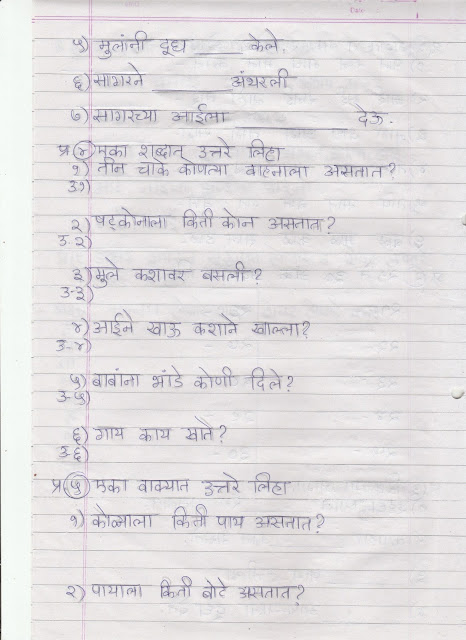 ५) मुलांनी दूध ____ केले.
६) सागरने ________ अंथरली
७) सागरच्या आईला ____________ देऊ.
प्र ४ एका शब्दात उत्तरे लिहा
१) तीन चाके कोणत्या वाहनाला असतात?
उ१)
२) षट्कोनाला किती कोन असतात?
उ-२)
३) मुले कशावर बसली?
उ-३)
४) आईने खाऊ कशाने खाल्ला?
उ-४)
५) बाबांना भांडे कोणी दिले?
उ-५)
६) गाय काय खाते?
उ-६)
प्र ५ एका वाक्यात उत्तरे लिहा
१) कोळ्याला किती पाय असतात?
२) पायाला किती बोटे असतात?